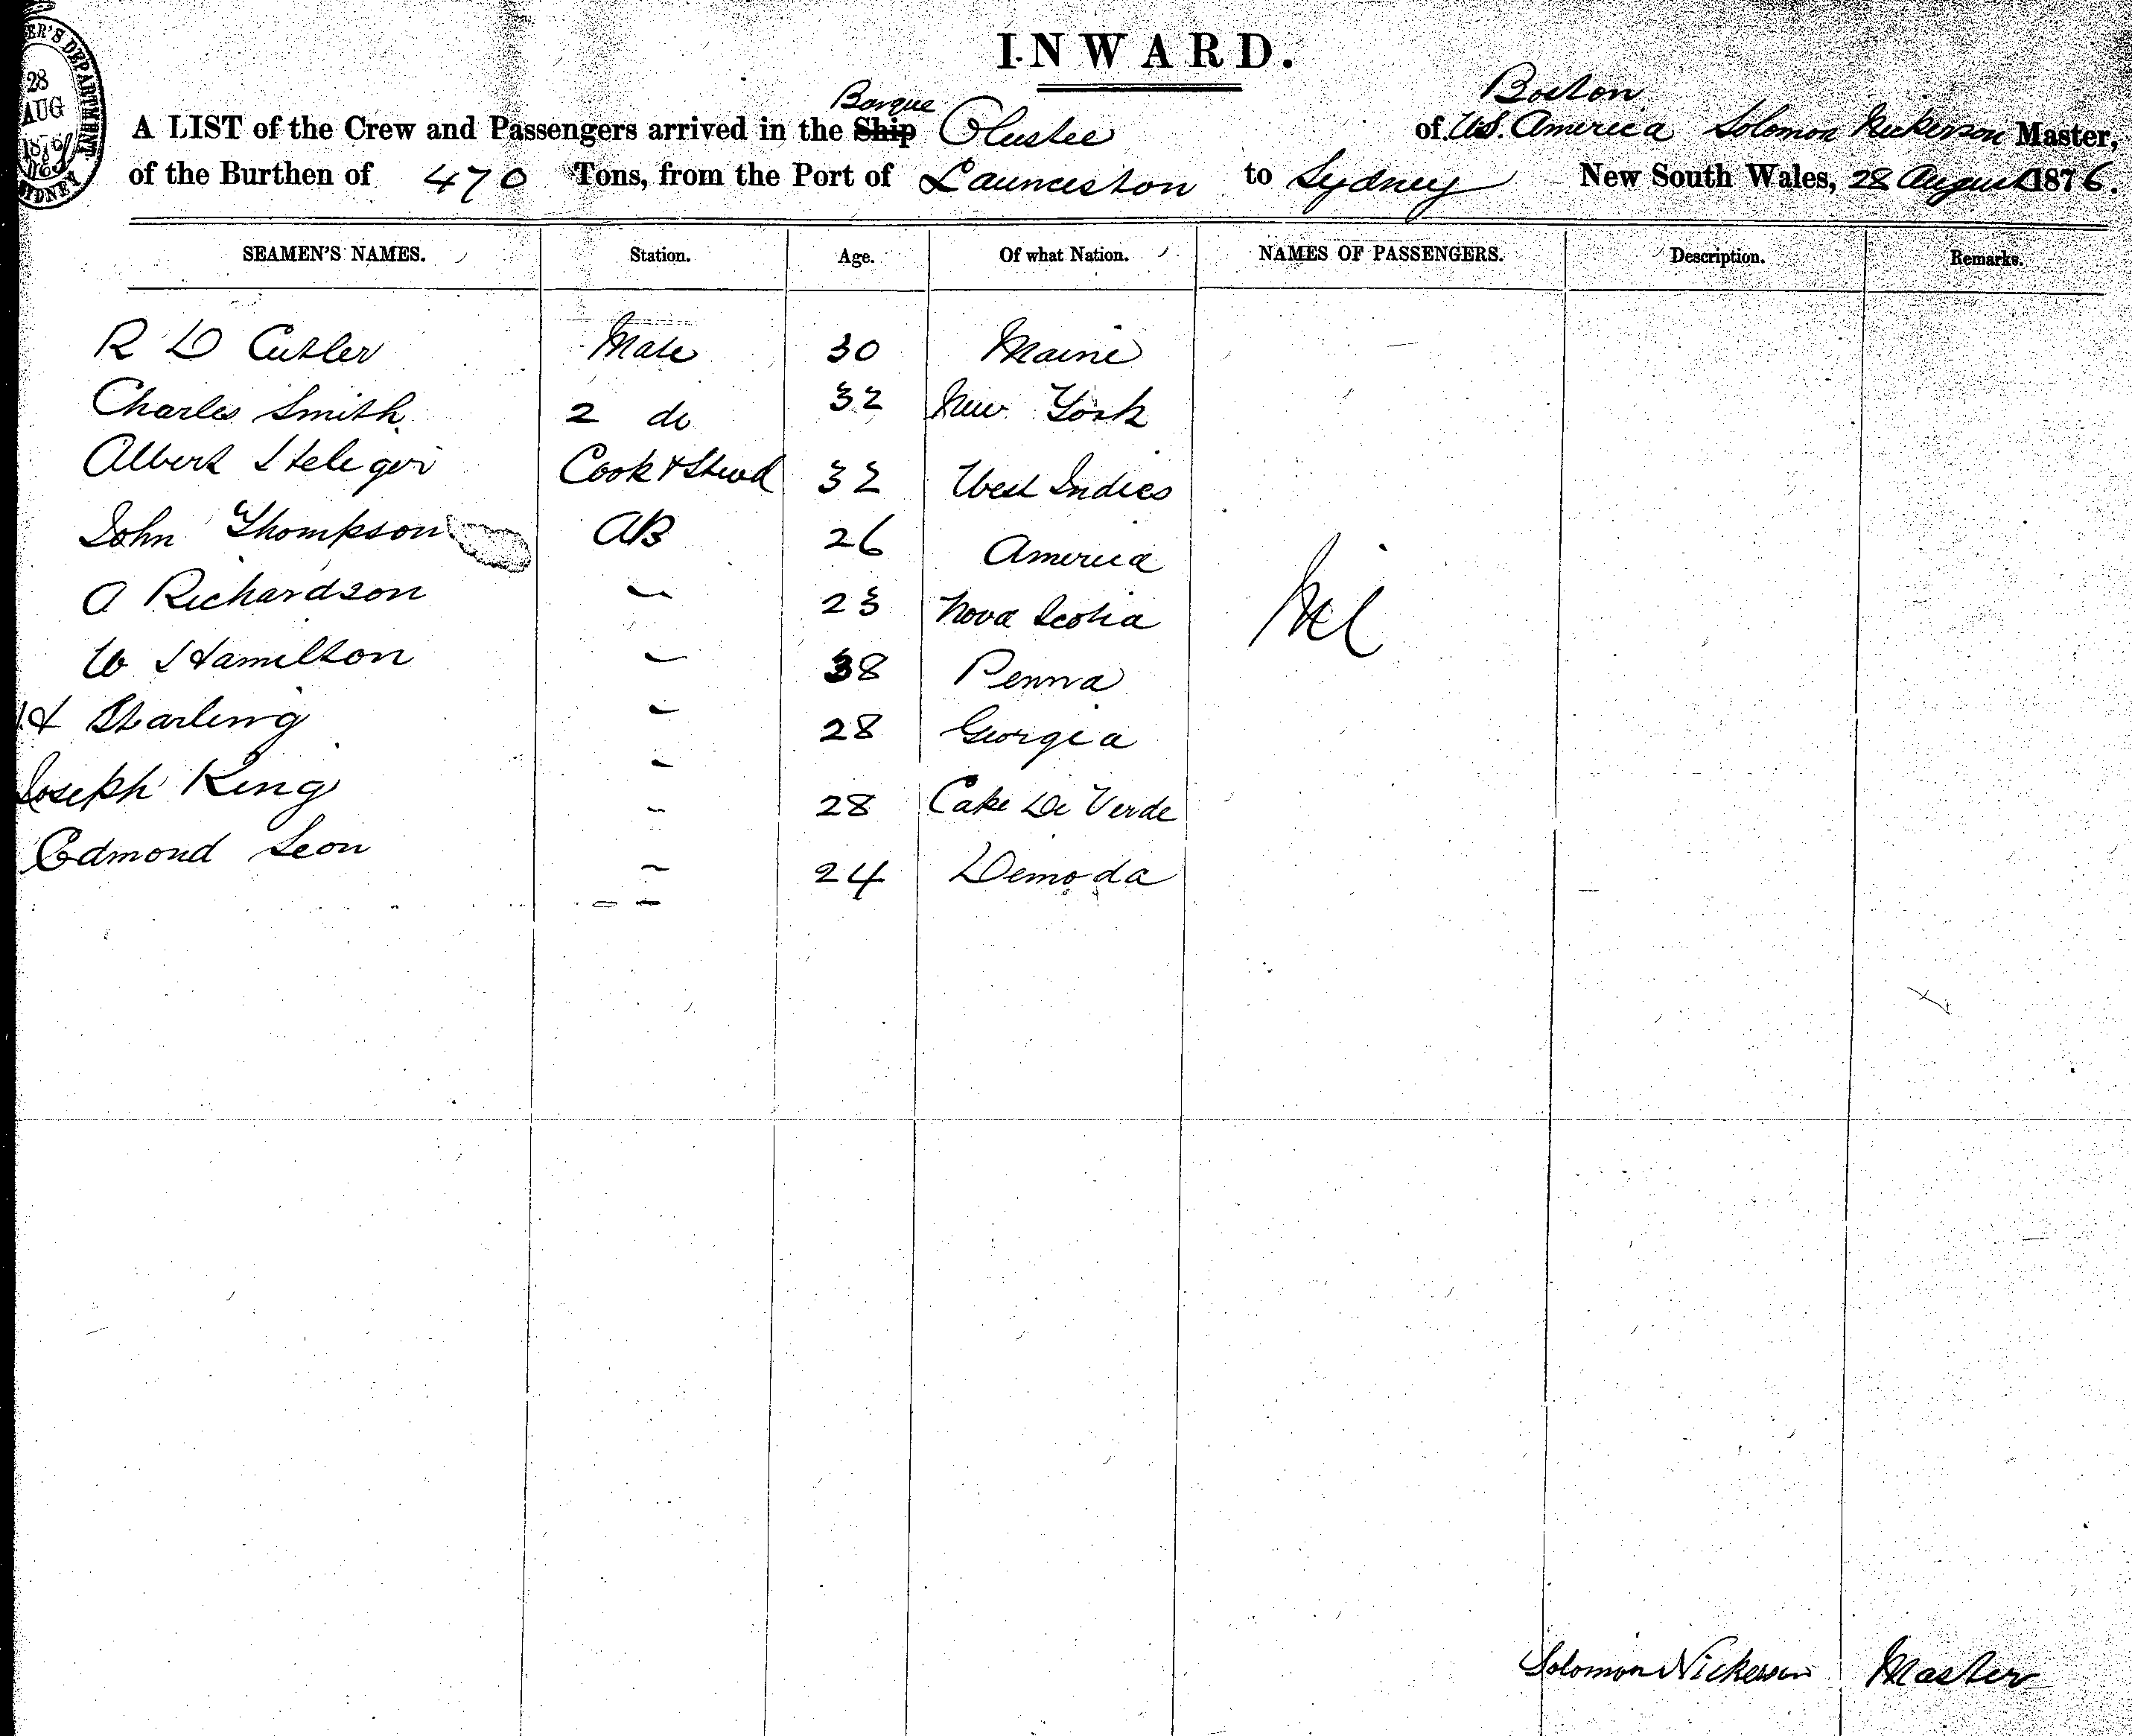 ER'S DEPARTMENT
28
AUG
1876
SYDNEY
INWARD.
Barque Boston
A LIST of the Crew and Passengers arrived in the Ship Olustee of U.S. America Solomon Nickerson Master,
of the Burthen of 470 Tons, from the Port of Launceston to Sydney New South Wales, 28 August 1876.
SEAMEN'S NAMES. Station. Age. Of what Nation. NAMES OF PASSENGERS. Description. Remarks.
R D Cutler Mate 30 Maine
Charles Smith 2 do 32 New York
Albert Cook & Stewd 32 West Indies
John Thompson AB 26 America
A Richardson 〃 23 Nova Scotia Nil
W Hamilton 〃 38 Penna
H Starling 〃 28 Georgia
Joseph King 〃 28 Cape De Verde
Edmond Leon 〃 24
Solomon Nickerson Master